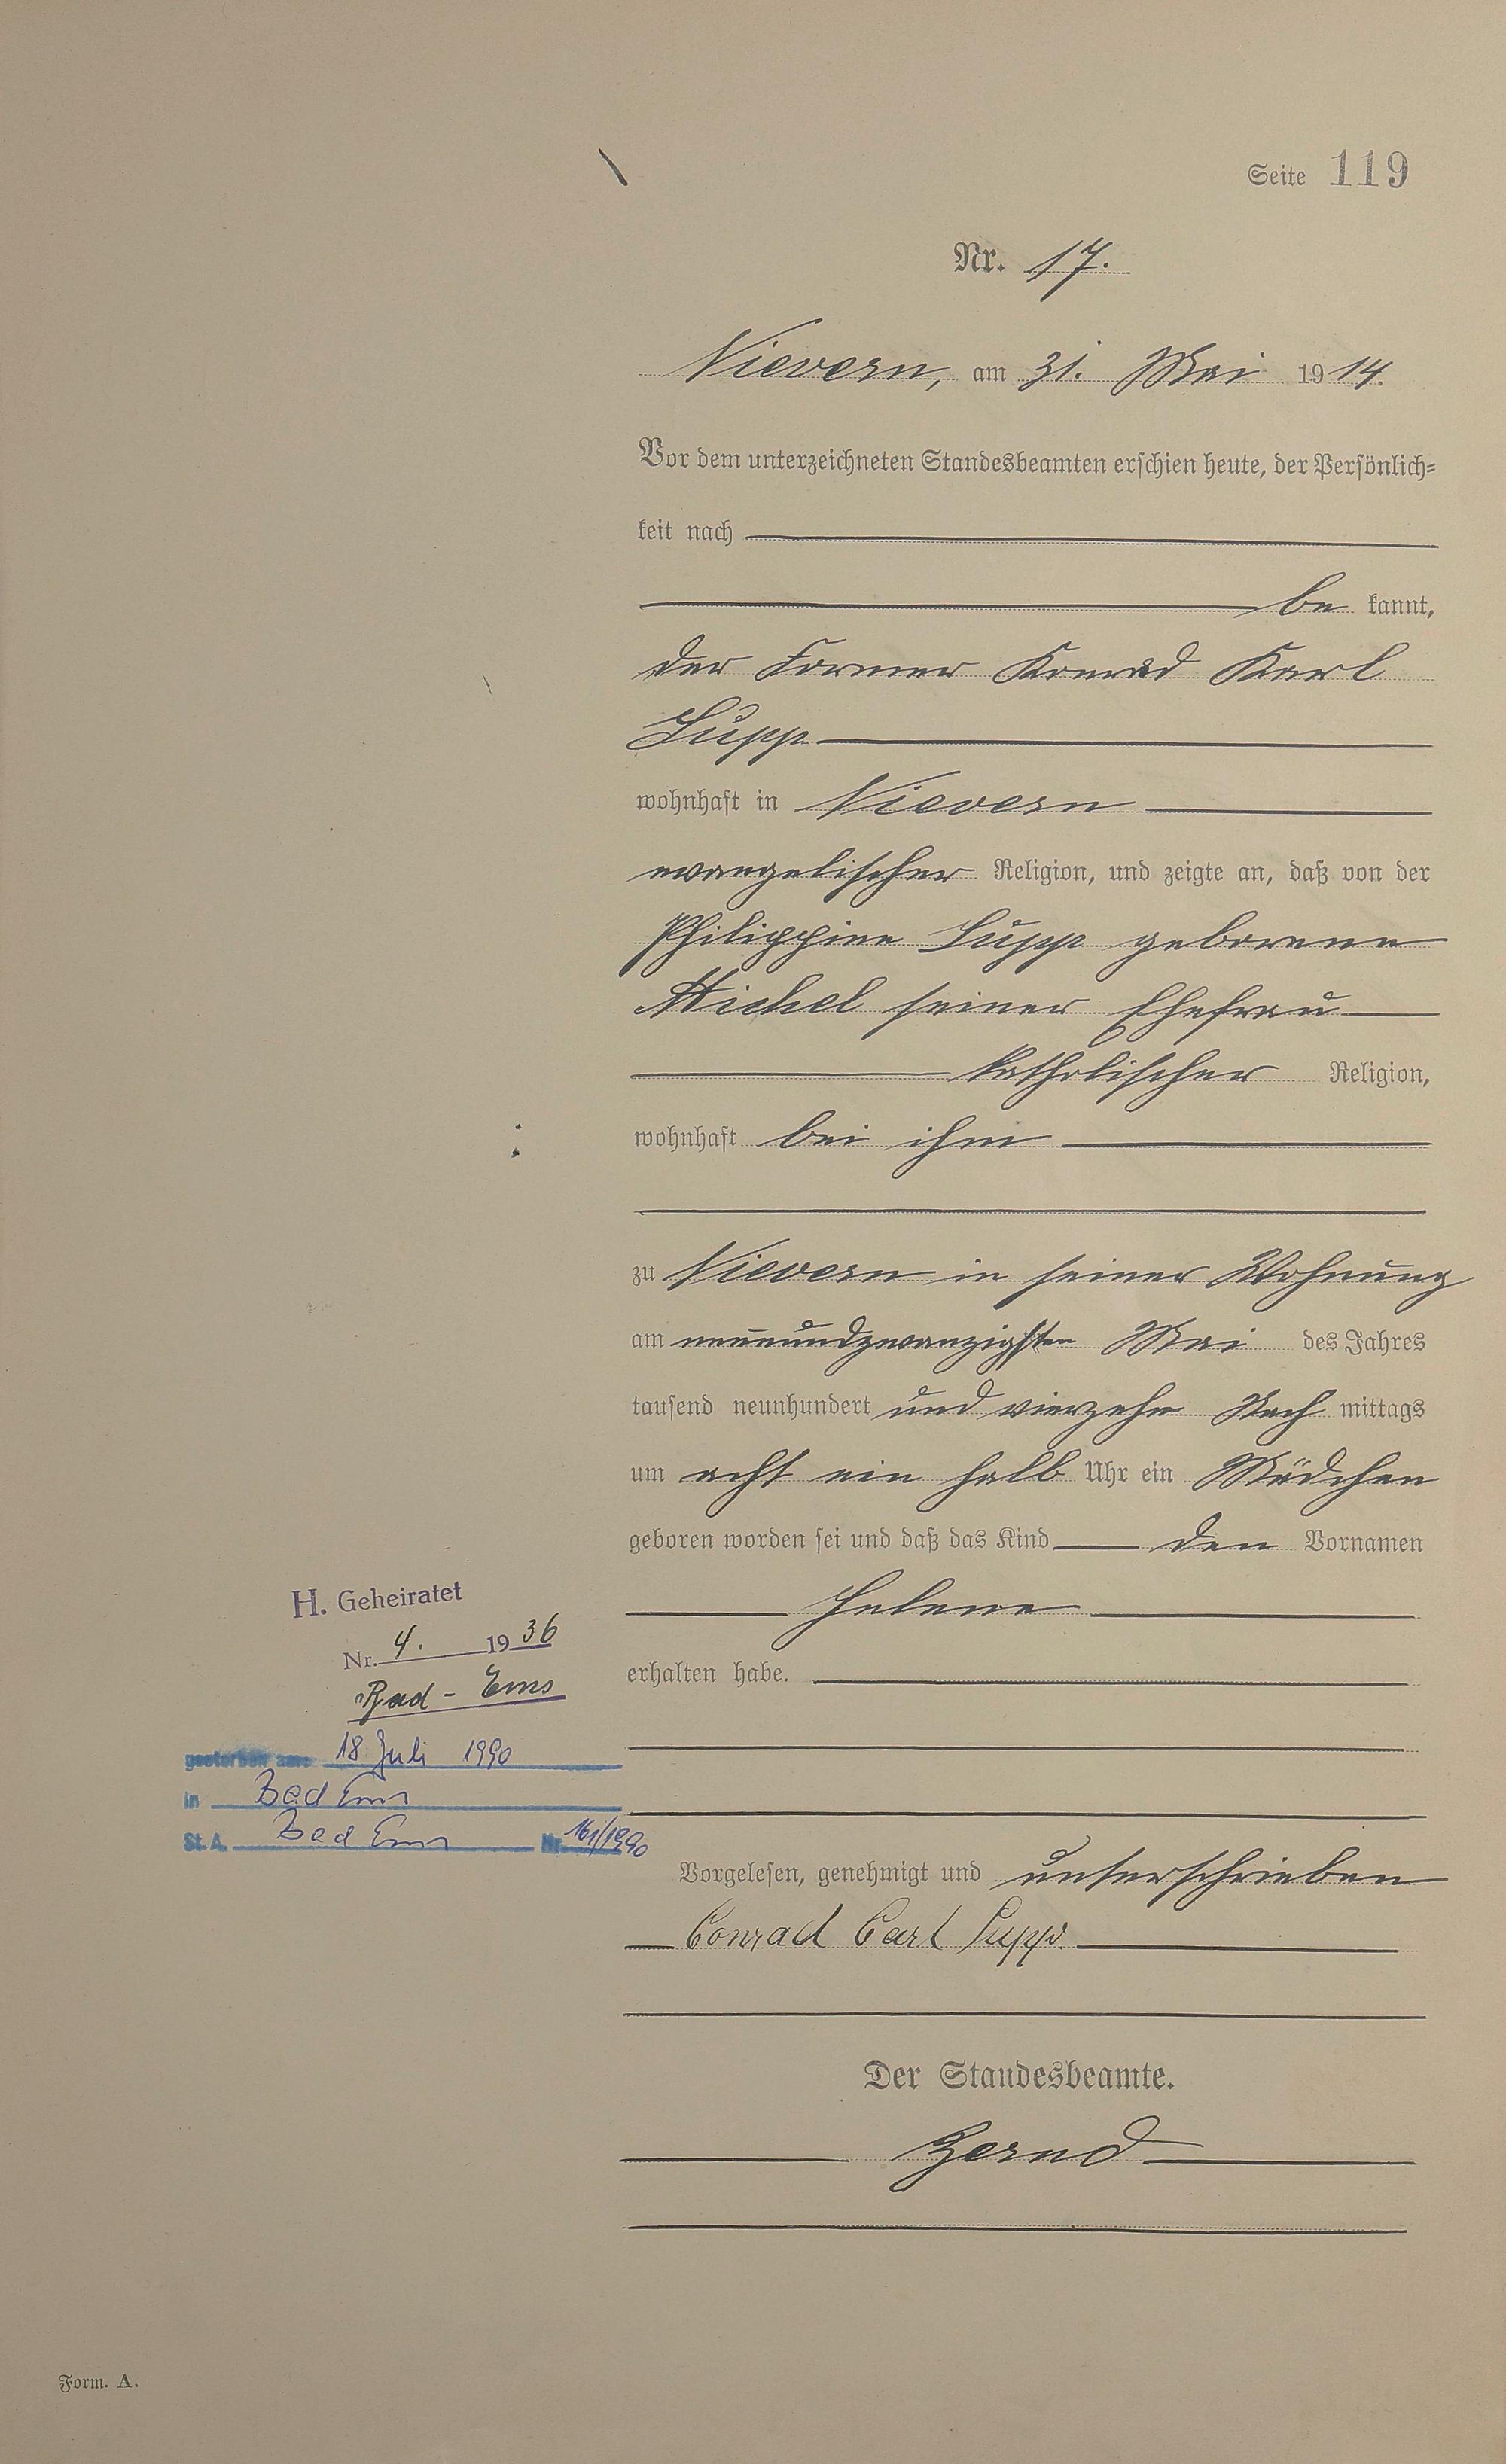 Seite 119
Nr. 17.
Nievern, am 31. Mai 1914.
Vor dem unterzeichneten Standesbeamten erschien heute, der Persönlich-
keit nach
be kannt,
der Former Konrad Karl
Supp
wohnhaft in Nievern
evangelischer Religion, und zeigte an, daß von der
Philippine Supp geborene
Michel seiner Ehefrau
katholischer Religion,
wohnhaft bei ihm
zu Nievern in seiner Wohnung
am neunundzwanzigsten Mai des Jahres
tausend neunhundert und vierzehn Nach mittags
um acht ein halb Uhr ein Mädchen
geboren worden sei und daß das Kind den Vornamen
Helene
erhalten habe.
H. Geheiratet
Nr. 4. 1936
Bad-Ems
gestorben am: 18. Juli 1990
in Bad Ems
St. A. Bad Ems Nr. 161/1990
Vorgelesen, genehmigt und unterschrieben
Conrad Carl Supp.
Der Standesbeamte.
Form. A.